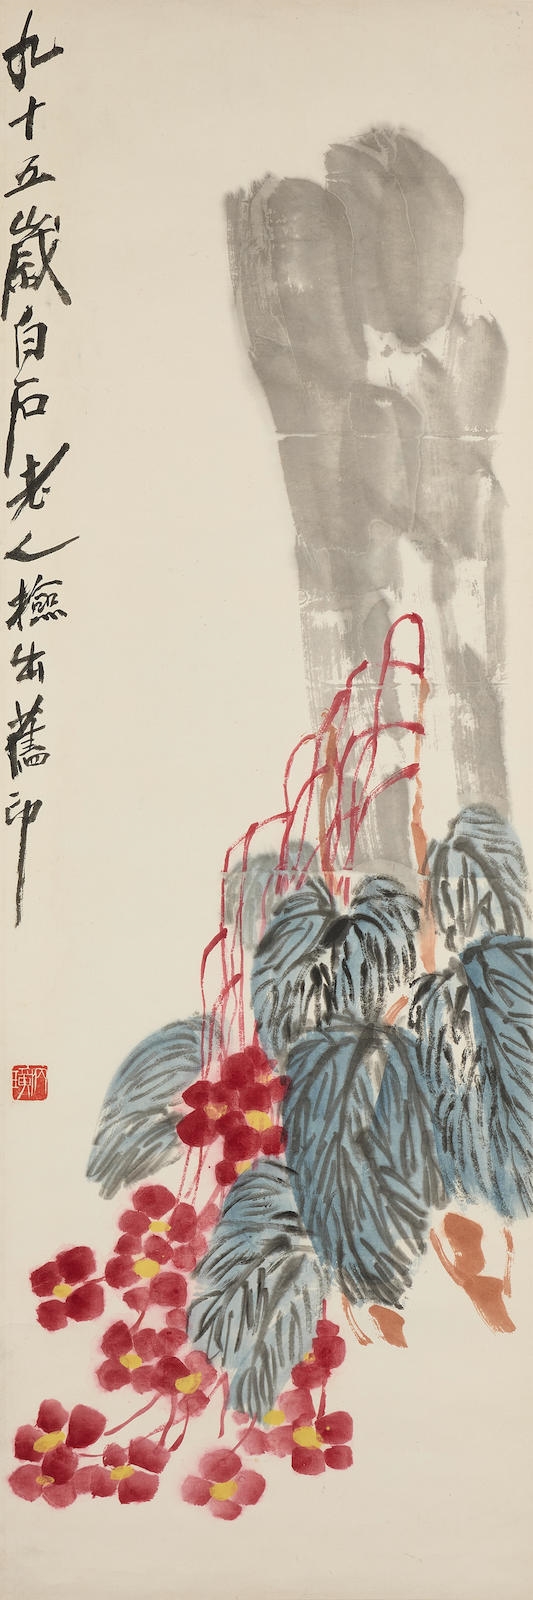 九十五歲白石老人檢出舊印